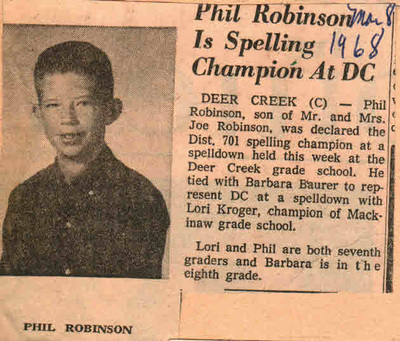 Phil Robinson Mar 8
Is Spelling 1968
Champion At DC
DEER CREEK (C) — Phil
Robinson, son of Mr. and Mrs.
Joe Robinson, was declared the
Dist. 701 spelling champion at a
spelldown held this week at the
Deer Creek grade school. He
tied with Barbara Baurer to rep-
resent DC at a spelldown with
Lori Kroger, champion of Mack-
inaw grade school.
Lori and Phil are both seventh
graders and Barbara is in the
eighth grade.
PHIL ROBINSON